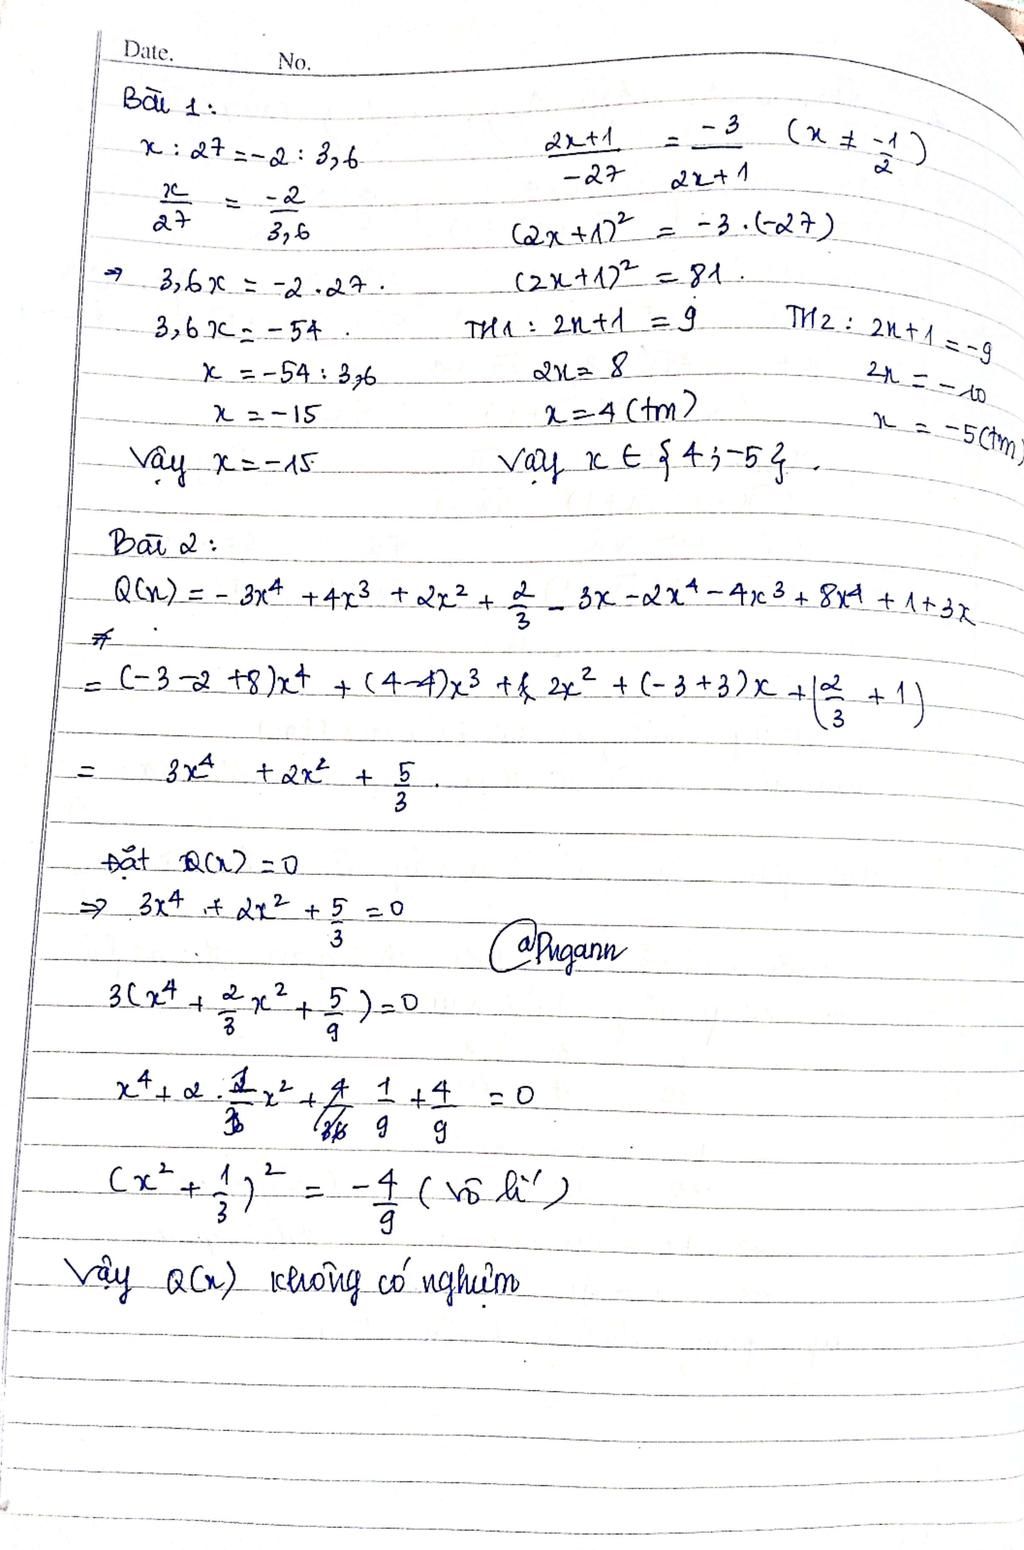 Date. No.
Bài 1:
x : 27 = -2 : 3,6
x/27 = -2/3,6
⇒ 3,6x = -2.27.
3,6x = -54.
x = -54 : 3,6
x = -15
Vậy x = -15
(2x+1)/-27 = -3/(2x+1) (x ≠ -1/2)
(2x+1)² = -3.(-27)
(2x+1)² = 81.
TH1: 2x+1 = 9
2x = 8
x = 4 (tm)
TH2: 2x+1 = -9
2x = -10
x = -5 (tm)
Vậy x ∈ {4; -5}.
Bài 2:
Q(x) = -3x⁴ + 4x³ + 2x² + 2/3 - 3x - 2x⁴ - 4x³ + 8x⁴ + 1 + 3x
= (-3-2+8)x⁴ + (4-4)x³ + 2x² + (-3+3)x + (2/3 + 1)
= 3x⁴ + 2x² + 5/3.
Đặt Q(x) = 0
⇒ 3x⁴ + 2x² + 5/3 = 0
@Pugann
3(x⁴ + 2/3 x² + 5/9) = 0
x⁴ + 2. 1/3 x² + 1/9 + 4/9 = 0
(x² + 1/3)² = -4/9 (vô lí)
Vậy Q(x) không có nghiệm